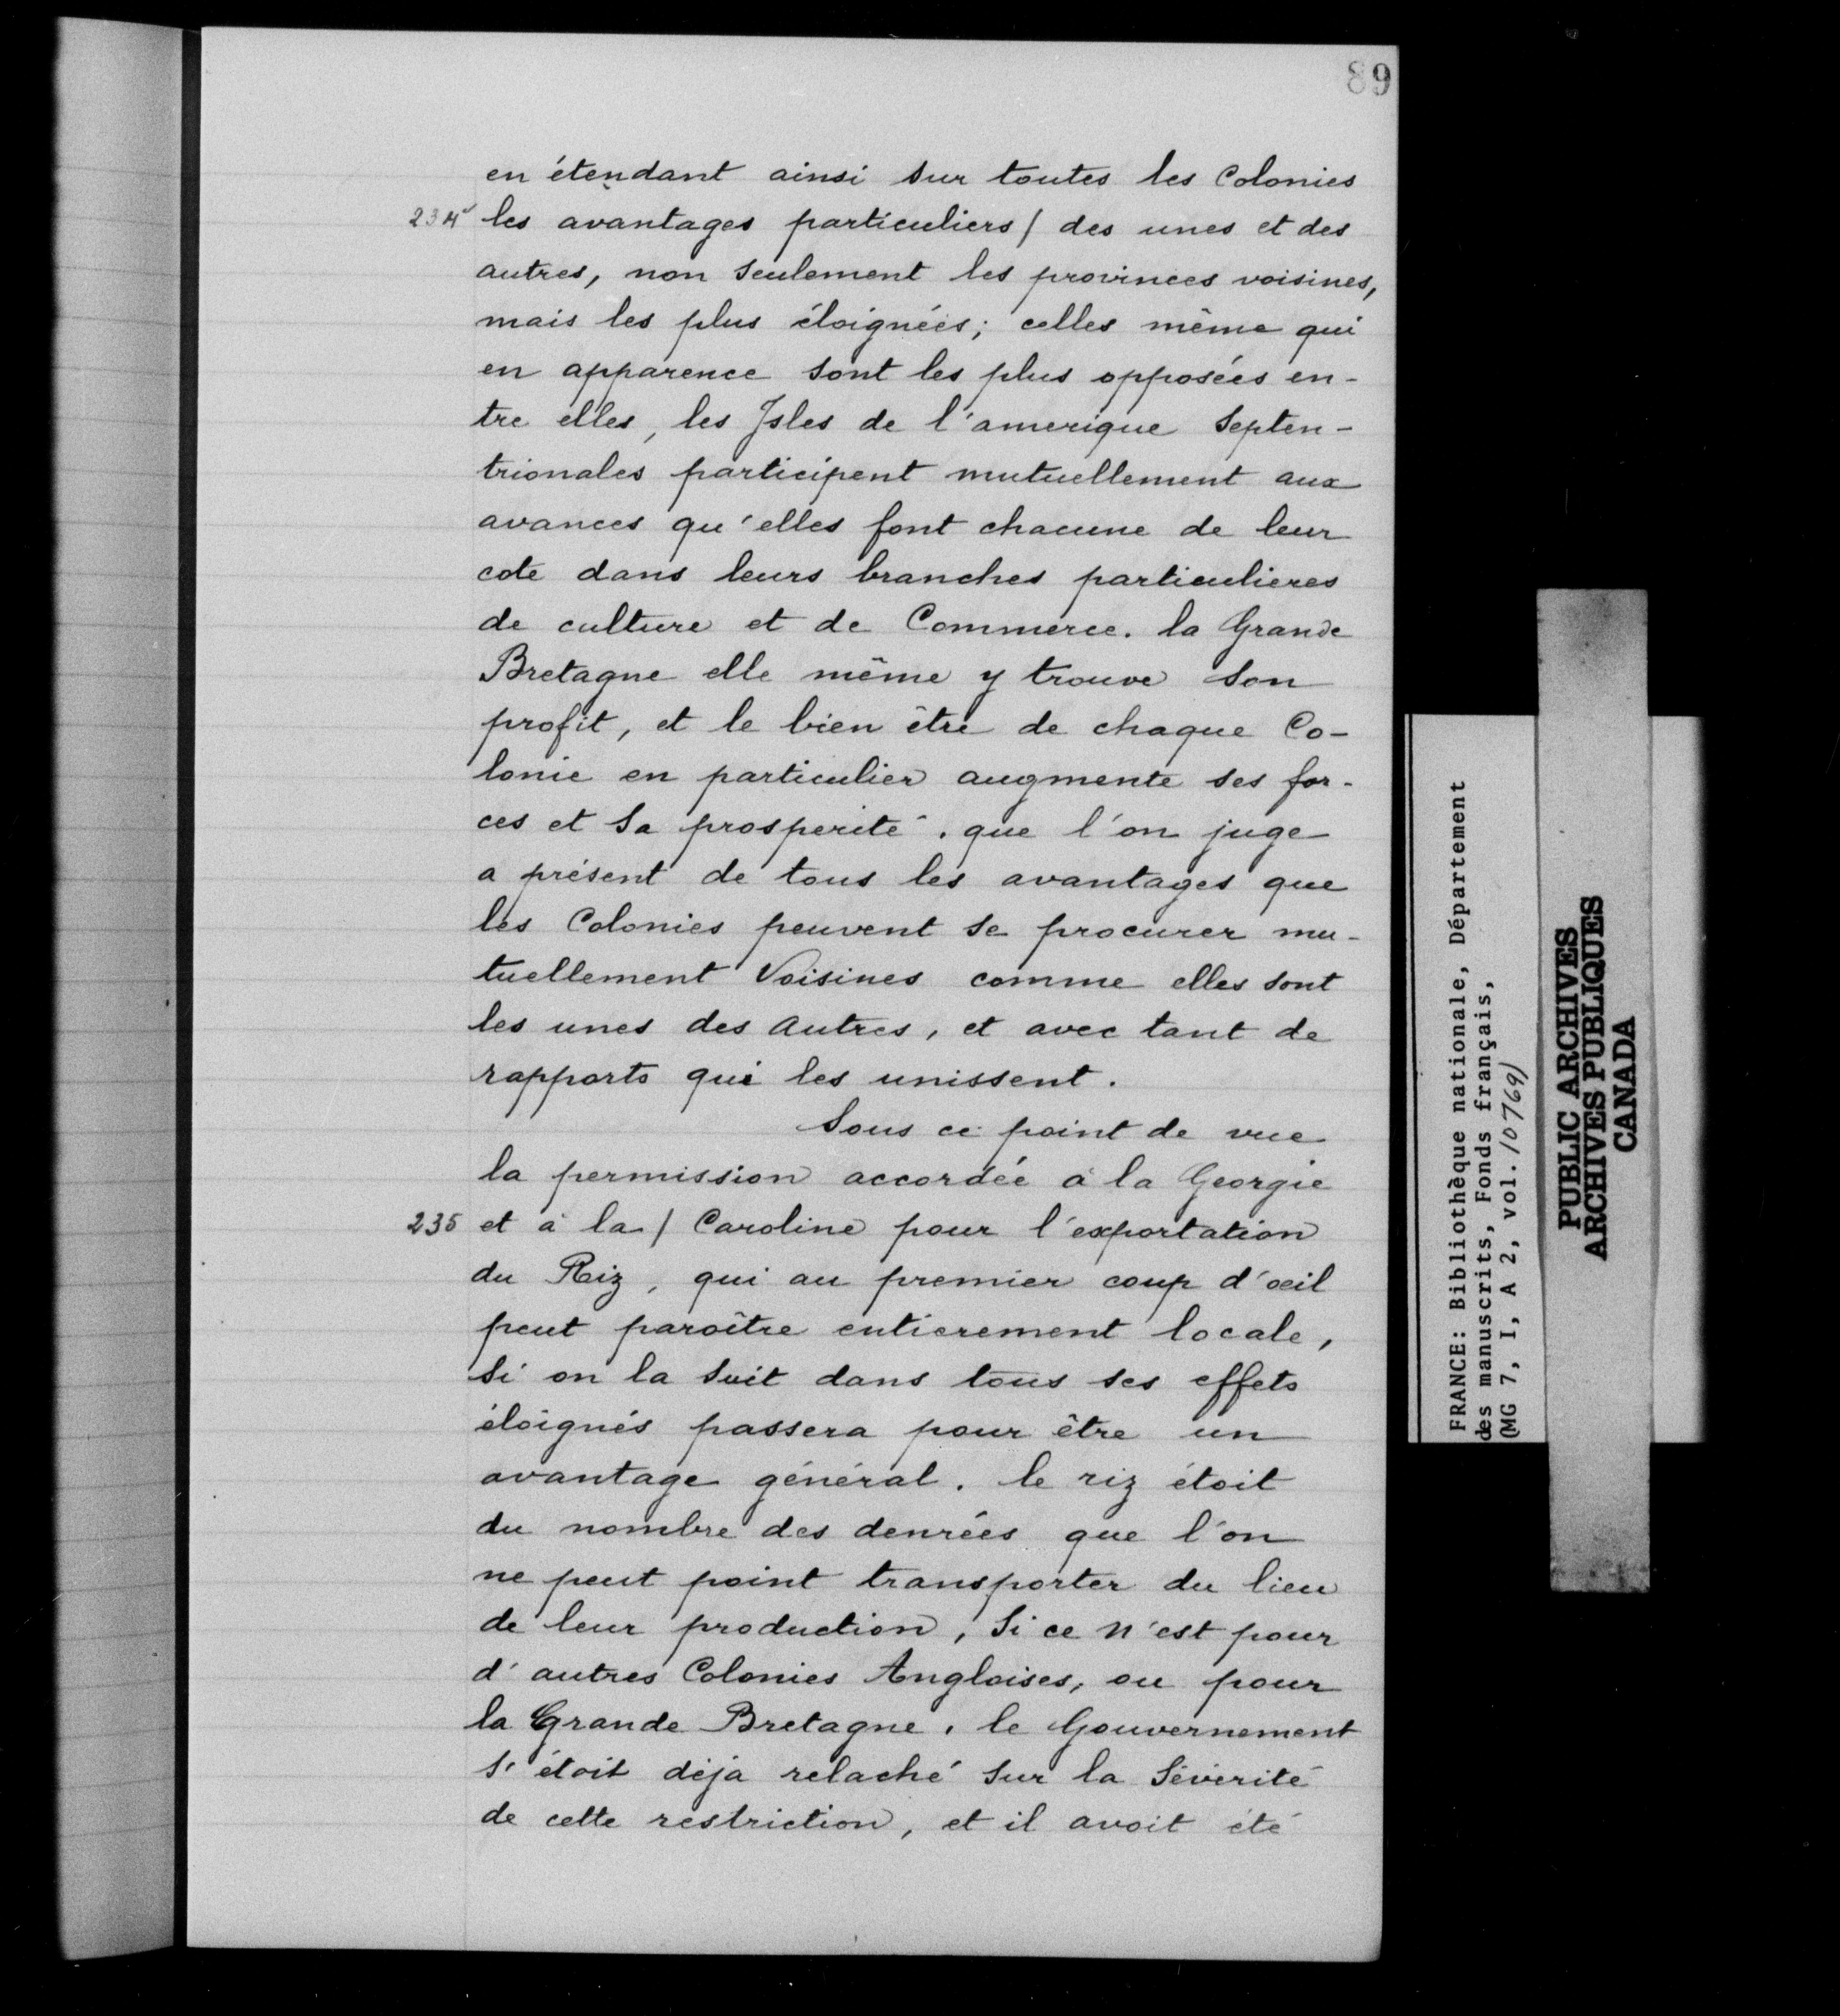 89
en étendant ainsi sur toutes les Colonies
234 les avantages particuliers / des unes et des
autres, non seulement les provinces voisines,
mais les plus éloignées; celles même qui
en apparence sont les plus opposées en-
tre elles, les Isles de l'amerique septen-
trionales participent mutuellement aux
avances qu'elles font chacune de leur
coté dans leurs branches particulieres
de culture et de Commerce. la Grande
Bretagne elle même y trouve son
profit, et le bien être de chaque Co-
lonie en particulier augmente ses for-
ces et sa prosperité. que l'on juge
a présent de tous les avantages que
les Colonies peuvent se procurer mu-
tuellement Voisines comme elles sont
les unes des autres, et avec tant de
rapports qui les unissent.
Sous ce point de vue
la permission accordée à la Georgie
235 et à la / Caroline pour l'exportation
du Riz, qui au premier coup d'œil
peut paroître entierement locale,
si on la suit dans tous ses effets
éloignés passera pour être un
avantage général. le riz étoit
du nombre des denrées que l'on
ne peut point transporter du lieu
de leur production, si ce n'est pour
d'autres Colonies Angloises, ou pour
la Grande Bretagne. le Gouvernement
s'étoit déja relaché sur la sévérité
de cette restriction, et il avoit été
FRANCE: Bibliothèque nationale, Département
des manuscrits, Fonds français,
(MG 7, I, A 2, vol. 10769)
PUBLIC ARCHIVES
ARCHIVES PUBLIQUES
CANADA